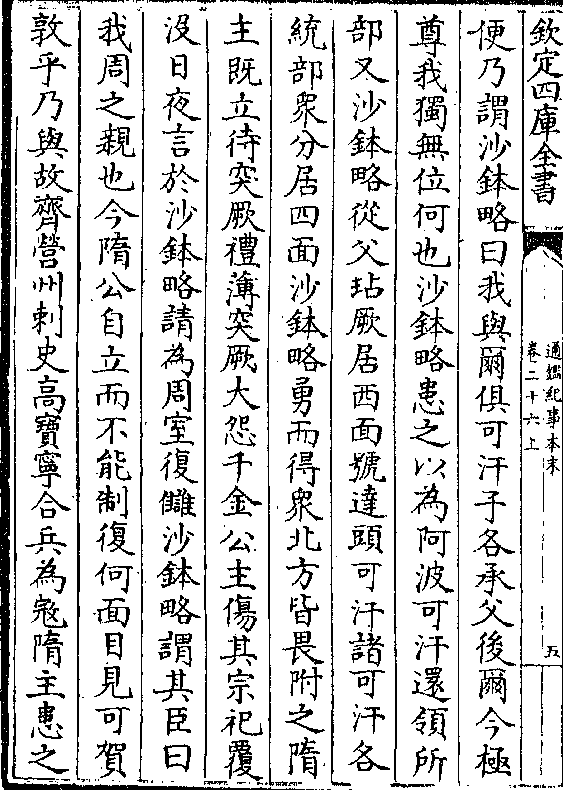 欽定四庫全書
通鑑紀事本末
卷二十六上
五
便乃謂沙鉢略曰我與爾俱可汗子各承父後爾今極
尊我獨無位何也沙鉢略患之以為阿波可汗還領所
部又沙鉢略從父玷厥居西面號達頭可汗諸可汗各
統部衆分居四面沙鉢略勇而得衆北方皆畏附之隋
主既立待突厥禮薄突厥大怨千金公主傷其宗祀覆
沒日夜言於沙鉢略請為周室復讎沙鉢略謂其臣曰
我周之親也今隋公自立而不能制復何面目見可賀
敦乎乃與故齊營州刺史高寶寧合兵為寇隋主患之